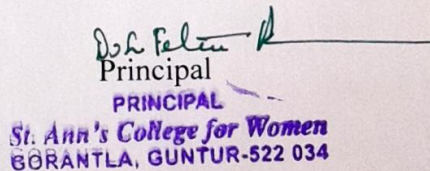 Principal
PRINCIPAL
St. Ann's College for Women
GORANTLA, GUNTUR-522 034